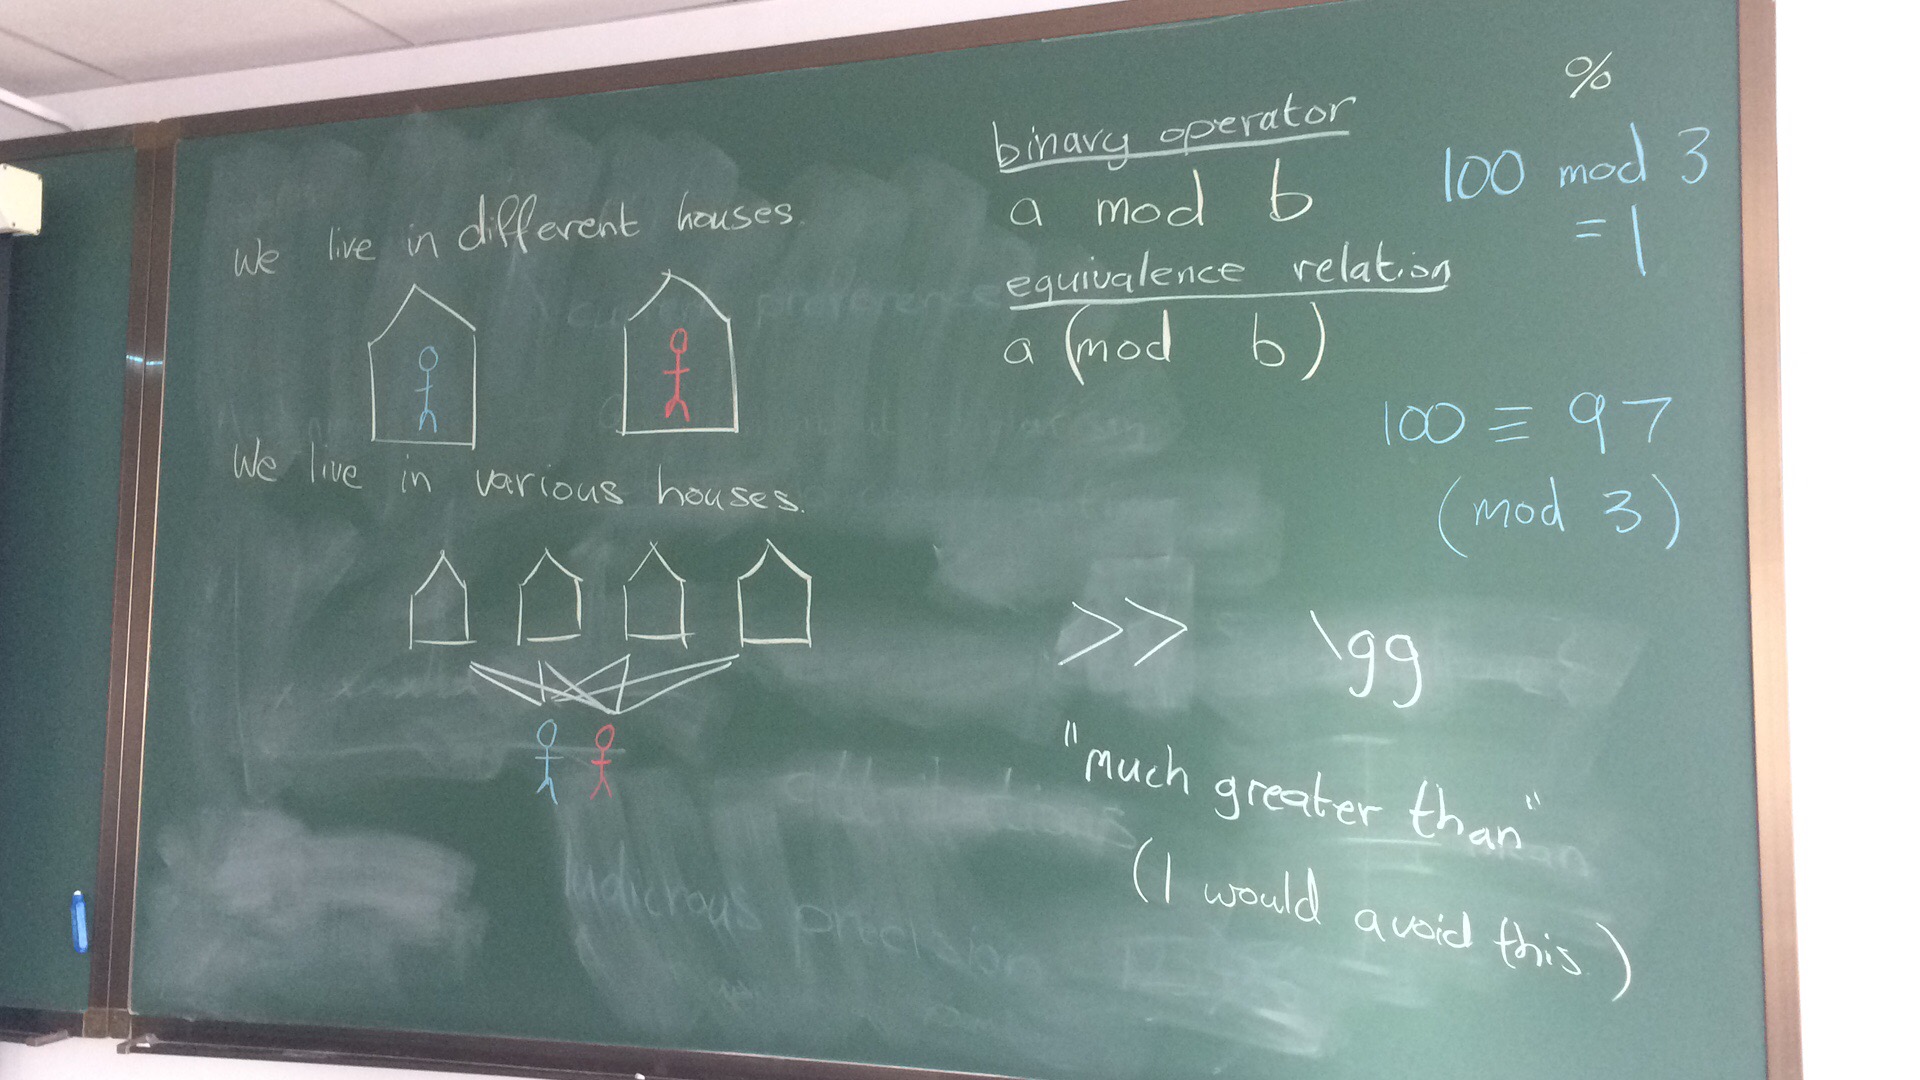 We live in different houses.
We live in various houses.
binary operator
a mod b
equivalence relation
a (mod b)
%
100 mod 3
= 1
100 ≡ 97
(mod 3)
>> \gg
"much greater than"
(I would avoid this)
ludicrous precision